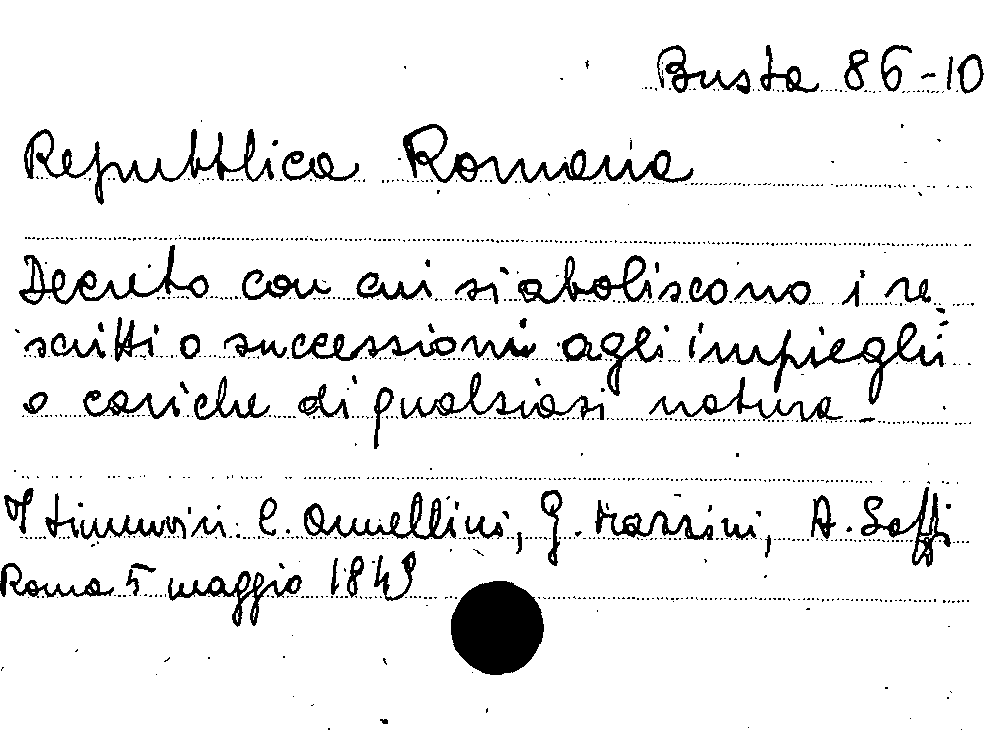 Busta 86-10
Repubblica Romana
Decreto con cui si aboliscono i re
scritti o successioni agli impieghi
o cariche di qualsiasi natura -
I triumviri: C. Armellini, G. Mazzini, A. Saffi
Roma 5 maggio 1849